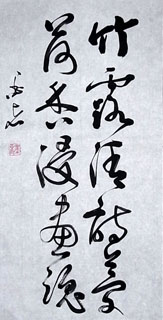 竹露清詩夢
荷香浸畫魂